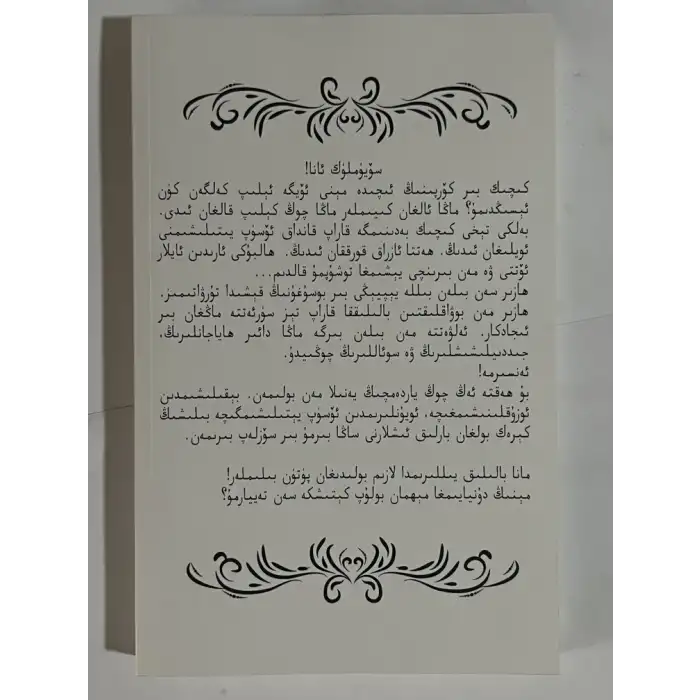 سۆيۈملۈك ئانا!
كىچىك بىر كۆرپىنىڭ ئىچىدە مېنى ئۆيگە ئېلىپ كەلگەن كۈن
ئېسىڭدىمۇ؟ ماڭا ئالغان كىيىملەر ماڭا چوڭ كېلىپ قالغان ئىدى.
بەلكى تېخى كىچىك بەدىنىمگە قاراپ قانداق ئۆسۈپ يېتىلىشىمنى
ئويلىغان ئىدىڭ. ھەتتا ئازراق قورققان ئىدىڭ. ھالبۇكى ئارىدىن ئايلار
ئۆتتى ۋە مەن بىرىنچى يېشىمغا توشۇپمۇ قالدىم...
ھازىر سەن بىلەن بىللە يېپيېڭى بىر بوسۇغۇنىڭ قېشىدا تۇرۋاتىمىز.
ھازىر مەن بوۋاقلىقتىن بالىلىققا قاراپ تېز سۈرئەتتە ماڭغان بىر
ئىجادكار. ئەلۋەتتە مەن بىلەن بىرگە ماڭا دائىر ھاياجانلىرىڭ،
جىددىيلىشىشلىرىڭ ۋە سوئاللىرىڭ چوڭىيدۇ.
ئەنسىرمە!
بۇ ھەقتە ئەڭ چوڭ ياردەمچىڭ يەنىلا مەن بولىمەن. بېقىلىشىمدىن
ئوزۇقلىنىشىمغىچە، ئويۇنلىرىمدىن ئۆسۈپ يېتىلىشىمگىچە بىلىشىڭ
كېرەك بولغان بارلىق ئىشلارنى ساڭا بىرمۇ بىر سۆزلەپ بىرىمەن.
مانا بالىلىق يىللىرىمدا لازىم بولىدىغان پۈتۈن بىلىملەر!
مېنىڭ دۇنيايىمغا مېھمان بولۇپ كېتىشكە سەن تەييارمۇ؟